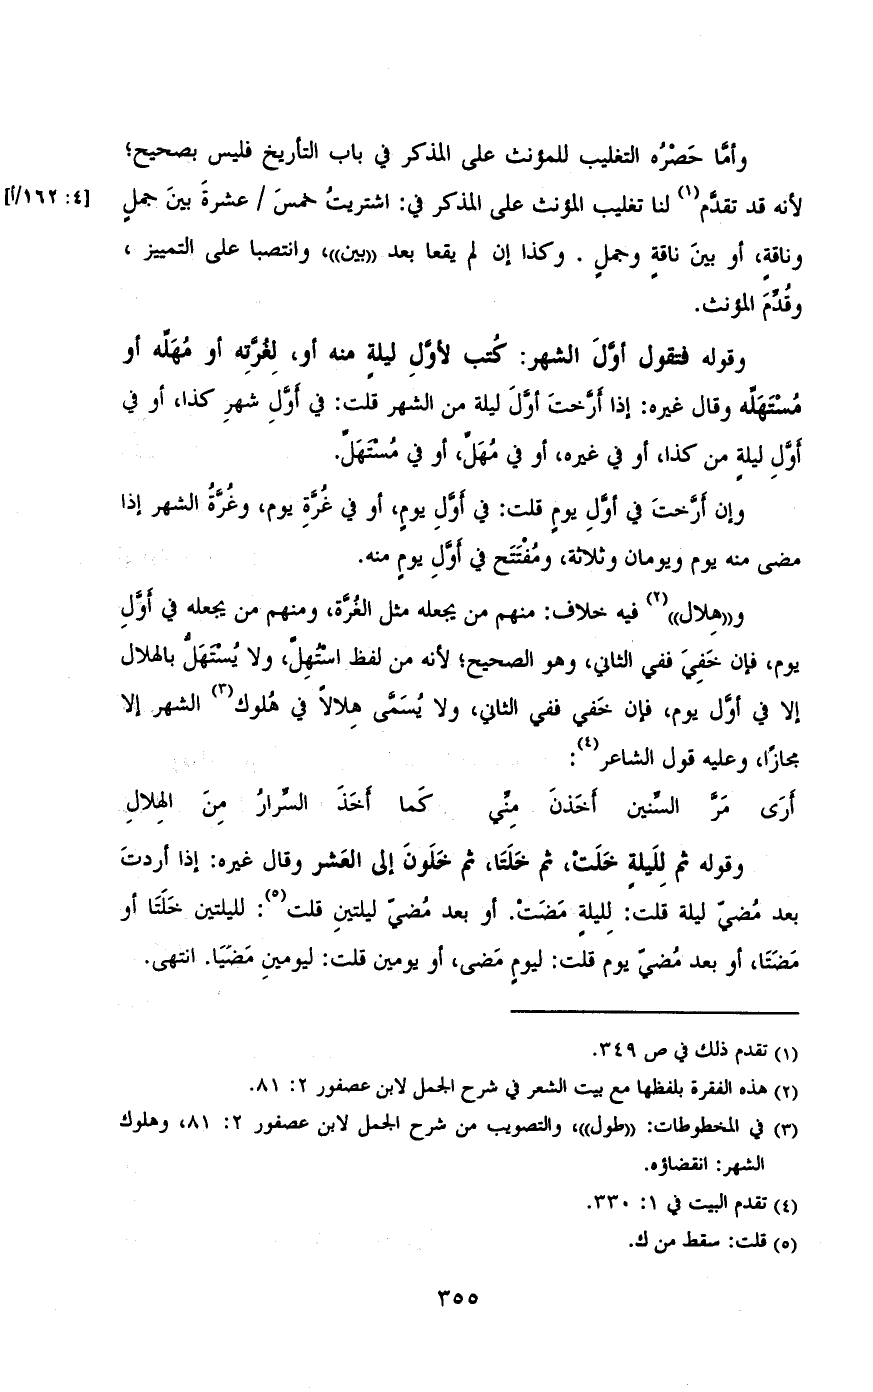 وأمَّا حَصْرُه التغليب للمؤنث على المذكر في باب التأريخ فليس بصحيح؛
لأنه قد تقدَّم(١) لنا تغليب المؤنث على المذكر في: اشتريتُ خمسَ / عشرةَ بينَ جملٍ [٤: ١٦٢/أ]
وناقةٍ، أو بينَ ناقةٍ وجملٍ . وكذا إن لم يقعا بعد «بين»، وانتصبا على التمييز ،
وقُدِّمَ المؤنث.
وقوله فتقول أوَّلَ الشهر: كُتب لأوَّلِ ليلةٍ منه أو، لِغُرَّتِه أو مُهَلِّه أو
مُسْتَهَلِّه وقال غيره: إذا أَرَّختَ أوَّلَ ليلة من الشهر قلت: في أَوَّلِ شهرِ كذا، أو في
أَوَّلِ ليلةٍ من كذا، أو في غيره، أو في مُهَلِّ، أو في مُسْتَهَلِّ.
وإن أَرَّختَ في أوَّلِ يومٍ قلت: في أَوَّلِ يومٍ، أو في غُرَّةِ يوم، وغُرَّةُ الشهر إذا
مضى منه يوم ويومان وثلاثة، ومُفْتَتَح في أَوَّلِ يومٍ منه.
و«هِلال»(٢) فيه خلاف: منهم من يجعله مثل الغُرَّة، ومنهم من يجعله في أَوَّلِ
يوم، فإن خَفيَ ففي الثاني، وهو الصحيح؛ لأنه من لفظ استُهِلَّ، ولا يُسْتَهَلُّ بالهلال
إلا في أوَّل يوم، فإن خَفي ففي الثاني، ولا يُسَمَّى هِلالاً في هُلوك(٣) الشهر إلا
مجازًا، وعليه قول الشاعر(٤):
أَرَى مَرَّ السِّنين أَخَذنَ مِنِّي كَما أَخَذَ السِّرارُ مِنَ الهِلالِ
وقوله ثم لِلَيلةٍ خَلَتْ، ثم خَلَتَا، ثم خَلَونَ إلى العَشر وقال غيره: إذا أردتَ
بعد مُضيّ ليلة قلت: لِليلةٍ مَضَتْ. أو بعد مُضيّ ليلتينِ قلت(٥): لليلتين خَلَتَا أو
مَضَتَا، أو بعد مُضيّ يوم قلت: ليومٍ مَضى، أو يومين قلت: ليومينِ مَضَيَا. انتهى.
(١) تقدم ذلك في ص ٣٤٩.
(٢) هذه الفقرة بلفظها مع بيت الشعر في شرح الجمل لابن عصفور ٢: ٨١.
(٣) في المخطوطات: «طول»، والتصويب من شرح الجمل لابن عصفور ٢: ٨١، وهلوك
الشهر: انقضاؤه.
(٤) تقدم البيت في ١: ٣٣٠.
(٥) قلت: سقط من ك.
٣٥٥